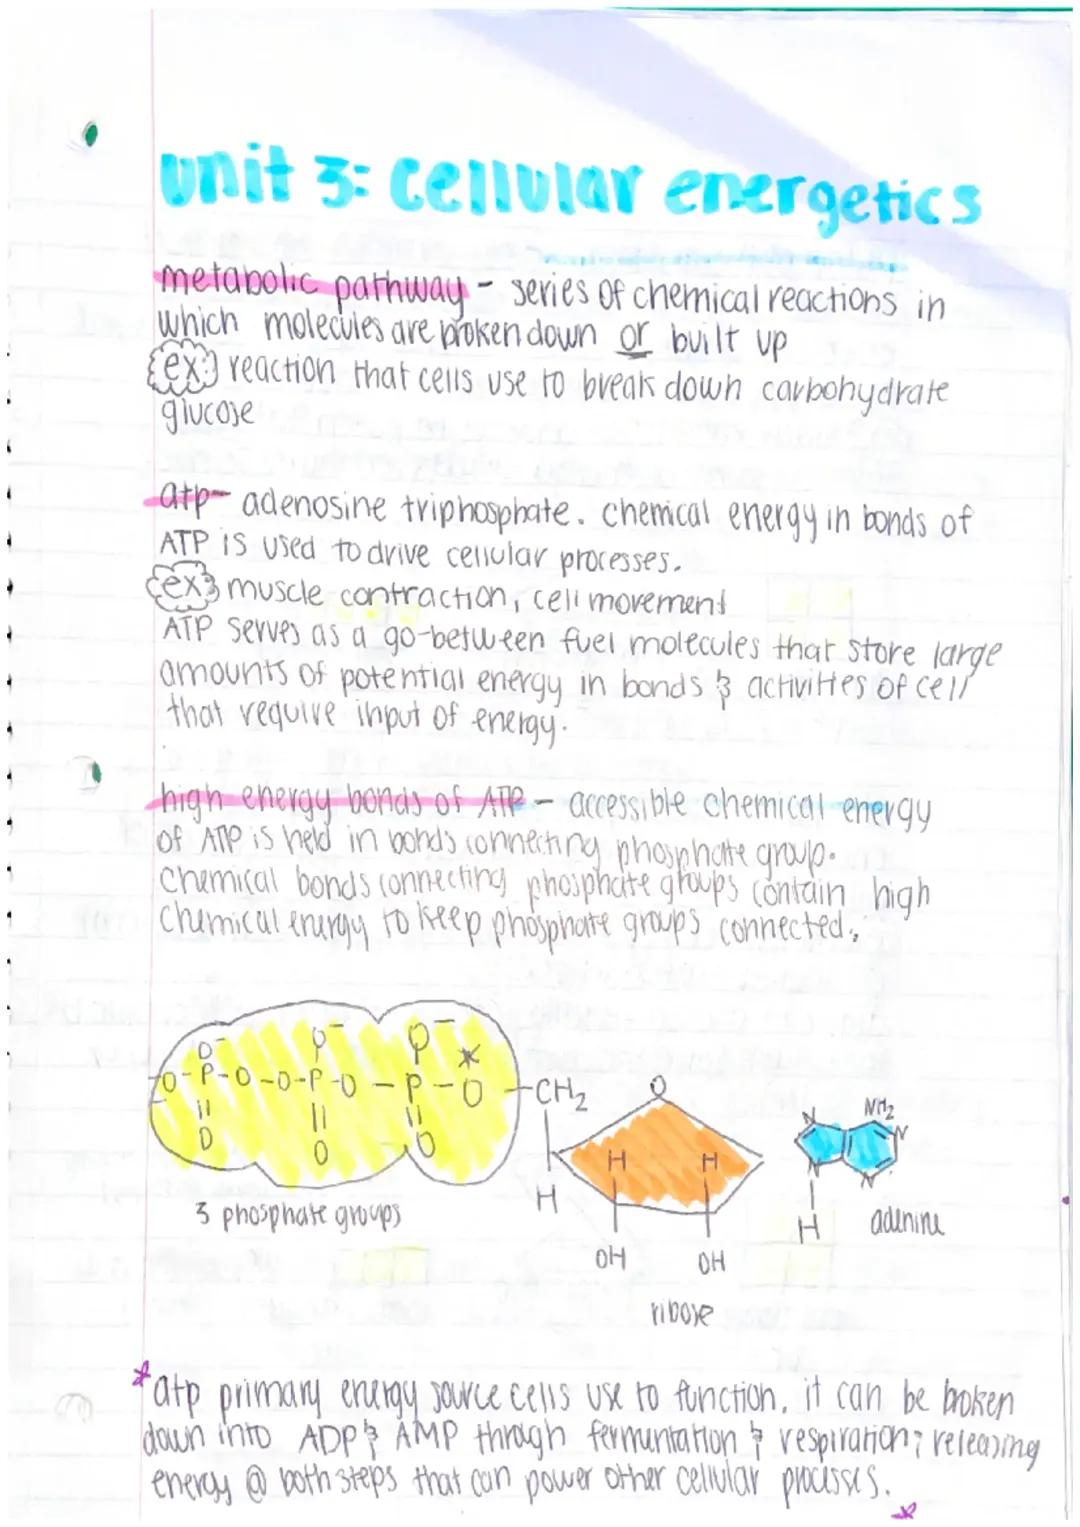 unit 3: cellular energetics
metabolic pathway - series of chemical reactions in
which molecules are broken down or built up
ex: reaction that cells use to break down carbohydrate
glucose
atp- adenosine triphosphate. chemical energy in bonds of
ATP is used to drive cellular processes.
ex: muscle contraction, cell movement
ATP serves as a go-between fuel molecules that store large
amounts of potential energy in bonds & activities of cell
that require input of energy.
high energy bonds of ATP - accessible chemical energy
of ATP is held in bonds connecting phosphate group.
Chemical bonds connecting phosphate groups contain high
chemical energy to keep phosphate groups connected.
O⁻ O⁻ O⁻ *
O-P-O-O-P-O-P-O-CH₂ O
O O O
N NH₂ N
H H
N N
H
H
3 phosphate groups
adenine
OH OH
ribose
*atp primary energy source cells use to function. it can be broken
down into ADP & AMP through fermuntation & respiration; releasing
energy @ both steps that can power other cellular processes.*